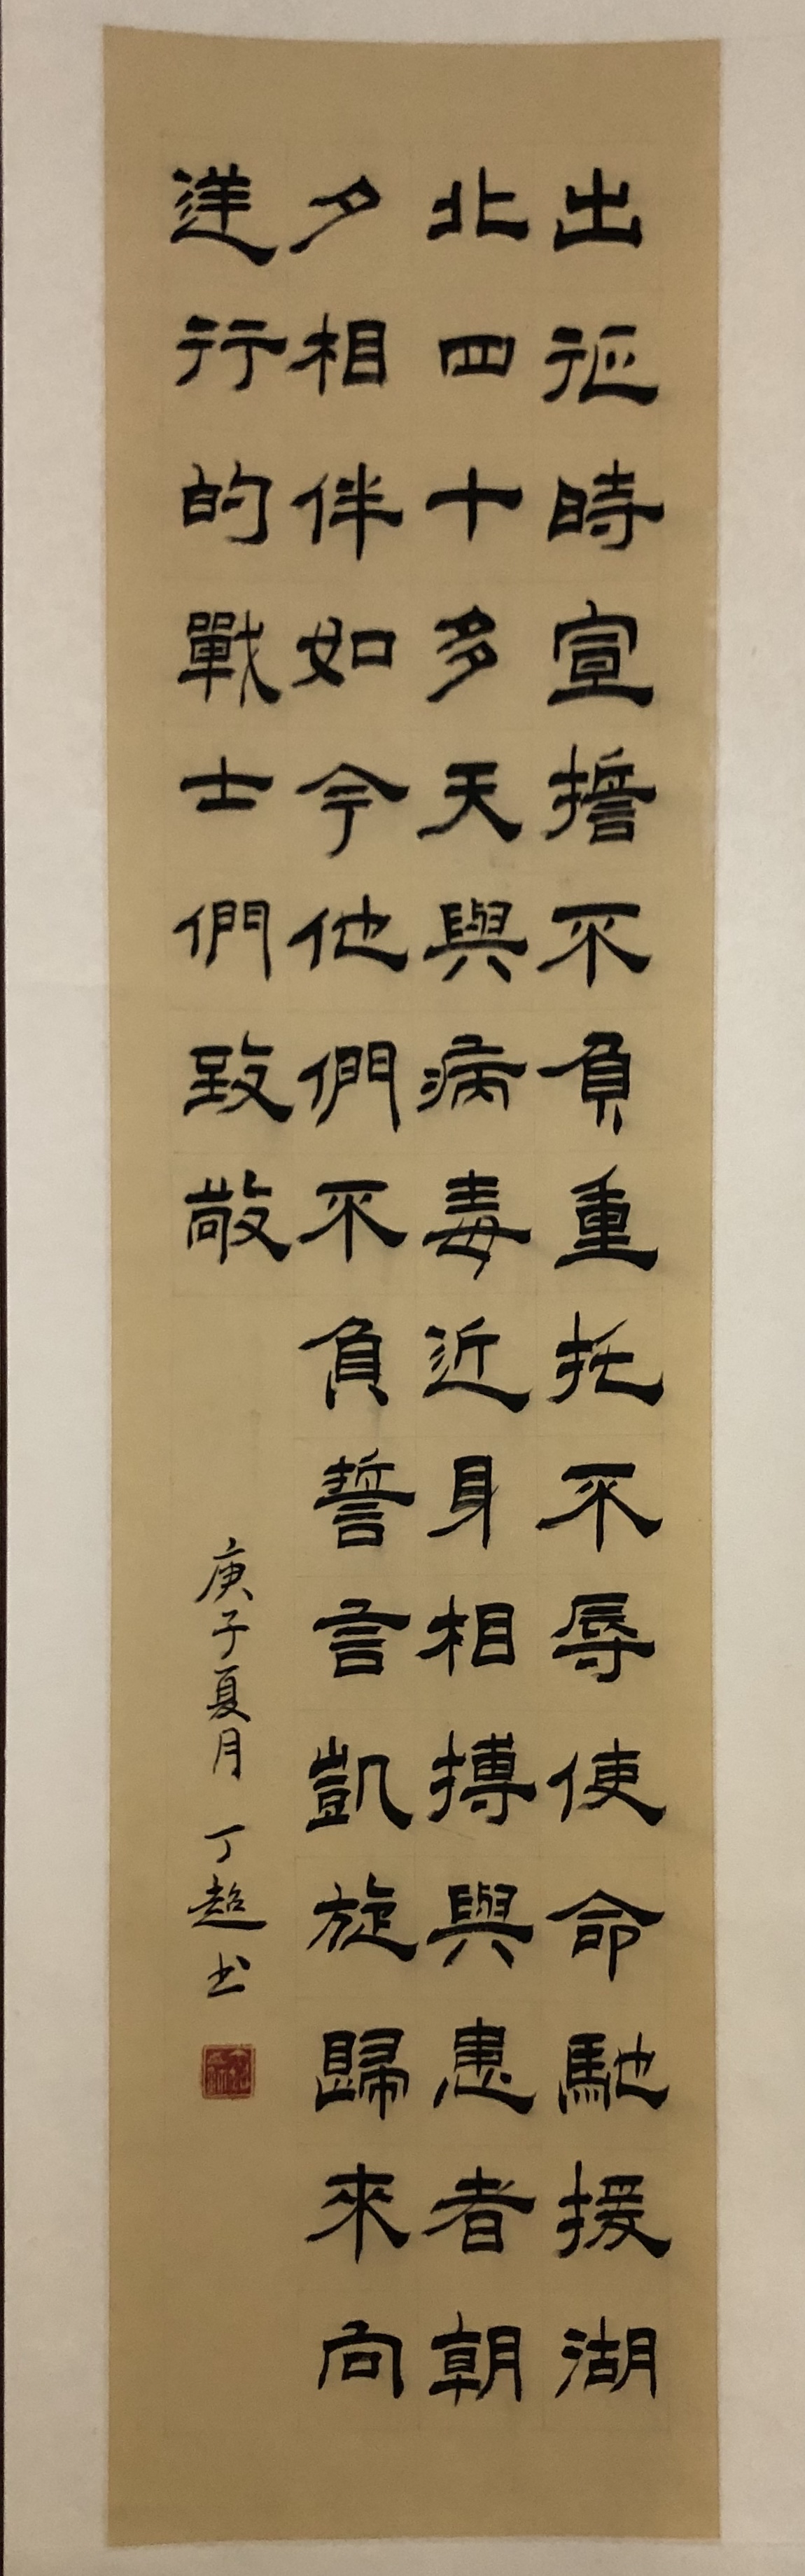 出征時宣擔不負重托不辱使命馳援湖
北四十多天與病毒近身相搏與患者朝
夕相伴如今他們不負誓言凱旋歸來向
逆行的戰士們致敬
庚子夏月 丁超书